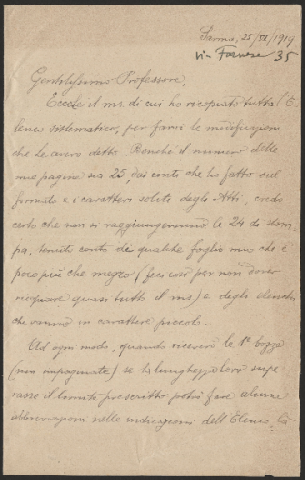 Parma, 25/VI/1919
via Farnese 35
Gentilissimo Professore,
Eccole il ms. di cui ho ricopiato tutto l'E-
lenco sistematico, per farvi le modificazioni
che le avevo detto. Benché il numero delle
mie pagine sia 25, dai conti che ho fatto sul
formato e i caratteri soliti degli Atti, credo
certo che non si raggiungeranno le 24 di stam-
pa, tenuto conto di qualche foglio mio che è
poco più che mezzo (feci così per non dover
ricopiare quasi tutto il ms) e degli elenchi
che vanno in carattere piccolo.
Ad ogni modo, quando riceverò le 1e bozze
(non impaginate) se la lunghezza loro supe-
rasse il limite prescritto potrò fare alcune
abbreviazioni nelle indicazioni dell'Elenco,